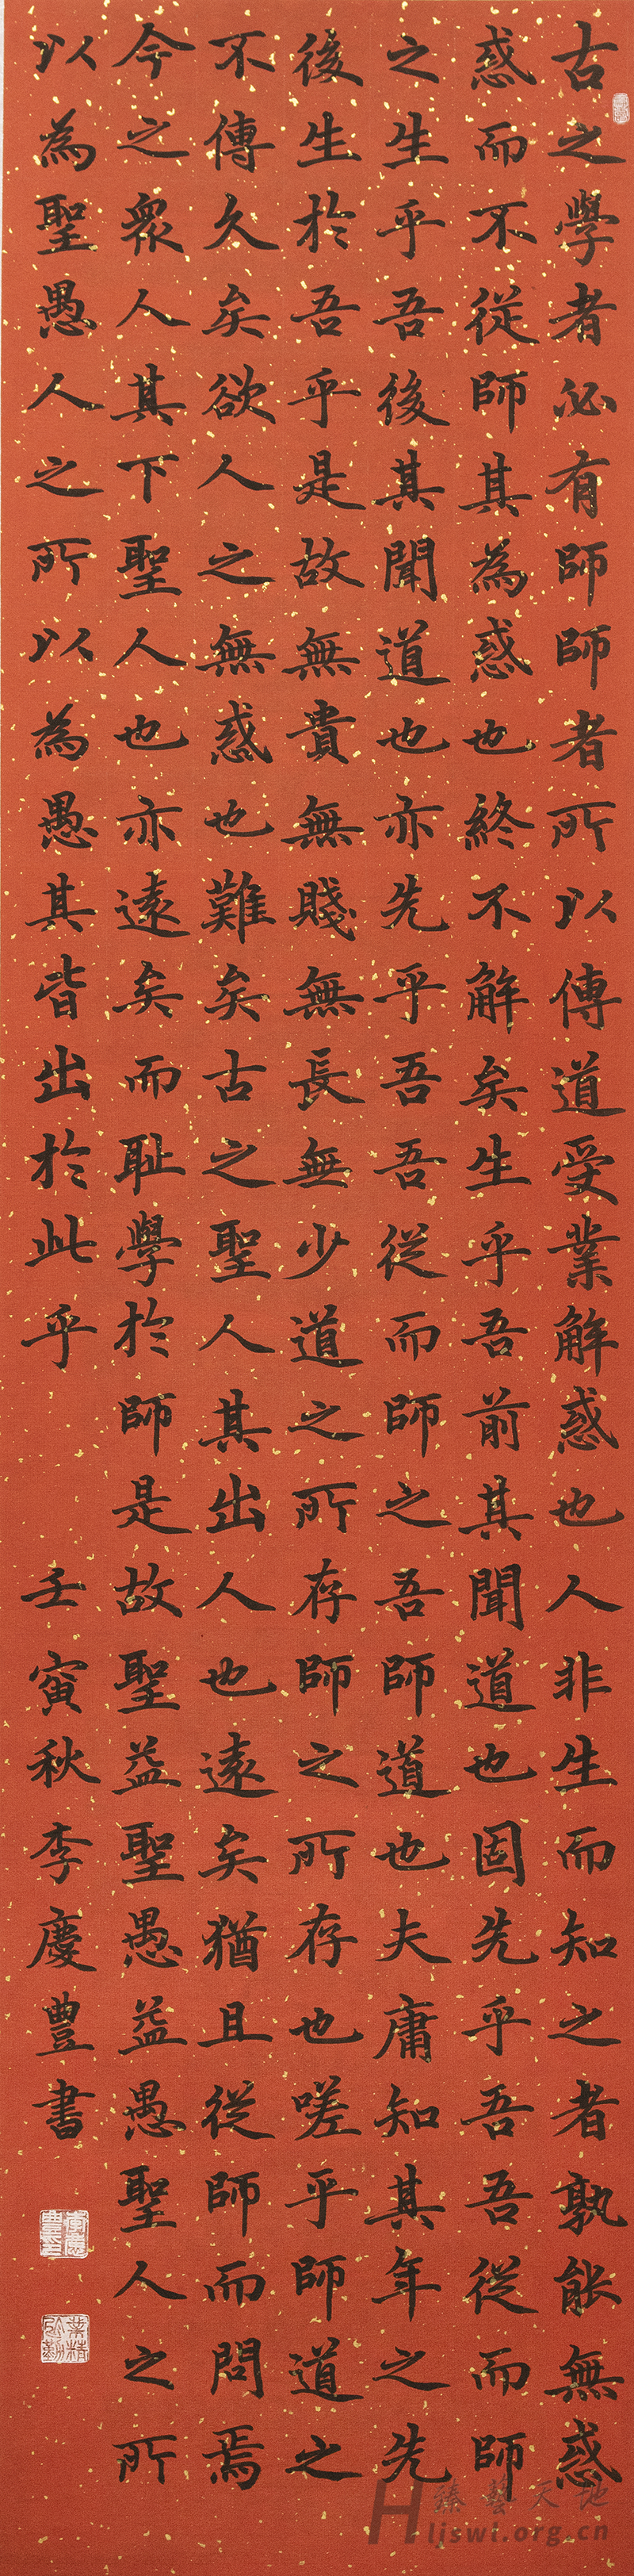 古之學者必有師師者所以傳道受業解惑也人非生而知之者孰能無惑
惑而不從師其為惑也終不解矣生乎吾前其聞道也固先乎吾吾從而師
之生乎吾後其聞道也亦先乎吾吾從而師之吾師道也夫庸知其年之先
後生於吾乎是故無貴無賤無長無少道之所存師之所存也嗟乎師道之
不傳久矣欲人之無惑也難矣古之聖人其出人也遠矣猶且從師而問焉
今之衆人其下聖人也亦遠矣而耻學於師是故聖益聖愚益愚聖人之所
以為聖愚人之所以為愚其皆出於此乎 壬寅秋李慶豊書
業精於勤
臻藝天地
liswl.org.cn